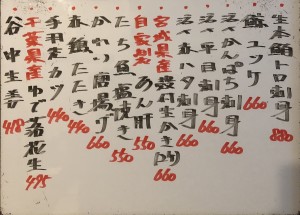 生本鮪トロ刺身 880
鯨ユッケ 660
活〆かんぱち刺身 660
活〆平目刺身 660
活〆ハタ刺身 660
宮城県産殻付生かき(2ヶ) 660
自家製あん肝 550
たち魚塩焼き 550
かれい唐揚げ 660
赤鶏たたき 440
手羽先カツ 440
千葉県産ゆで落花生 495
谷中生姜 418